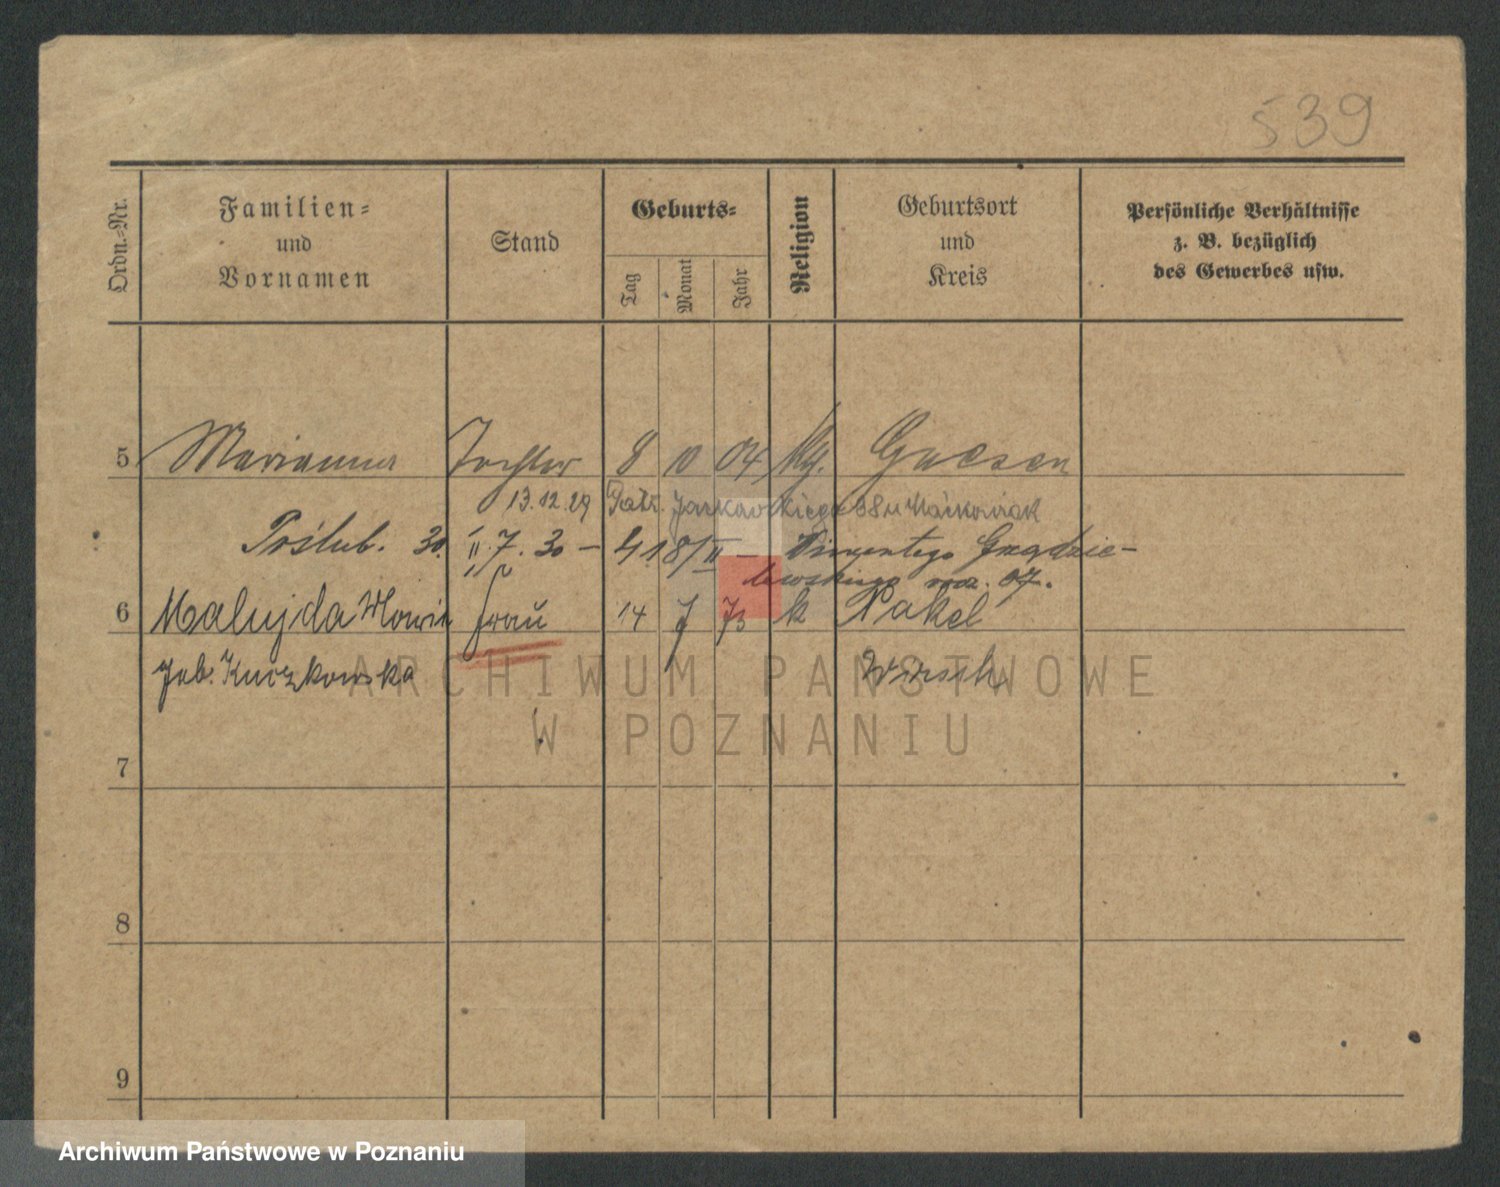 539
Ordn.-Nr.
Familien-
und
Vornamen
Stand
Geburts-
Tag
Monat
Jahr
Religion
Geburtsort
und
Kreis
Persönliche Verhältnisse
z. B. bezüglich
des Gewerbes usw.
5 Marianna Tochter 8 10 04 Gnesen
13.12.29 Jackowskiego 38 u Maćkowiak
Poślub. 30. 7. 30 – 418/II – Wincentego Gogdzie-
lewskiego 07.
6 Malujda Maria Frau 14 7 73 k Nakel
Wirsitz
ARCHIWUM PAŃSTWOWE
W POZNANIU
7
8
9
Archiwum Państwowe w Poznaniu